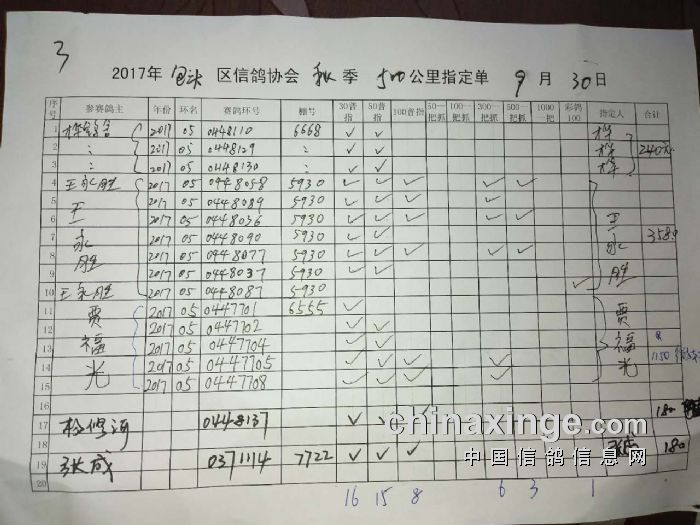 3
2017年 包头 区信鸽协会 秋 季 500 公里指定单 9 月 30 日
序号 参赛鸽主 年份 环名 赛鸽环号 棚号 30普指 50普指 100普指 50一把抓 100一把抓 300一把抓 500一把抓 1000一把 彩鸽100 指定人 合计
1 2017 05 0448110 6668 ✓ ✓
2 : 2017 05 0448129 : ✓ ✓ 240元
3 : 2017 05 0448130 : ✓ ✓
4 王永胜 2017 05 0448058 5930 ✓ ✓ ✓ ✓ ✓
5 2017 05 0448089 5930 ✓ ✓ ✓ ✓
6 王 2017 05 0448036 5930 ✓ ✓ ✓ ✓ ✓ 王
7 永 2017 05 0448090 5930 ✓ ✓ 永
8 胜 2017 05 0448077 5930 ✓ ✓ ✓ ✓ ✓ 胜
9 2017 05 0448037 5930 ✓ ✓
10 王永胜 2017 05 0448087 5930 ✓
11 贾 2017 05 0447701 6555 ✓ 贾
12 2017 05 0447702 ✓ ✓
13 福 2017 05 0447704 ✓ ✓ 福
14 光 2017 05 0447705 ✓ ✓ ✓ ✓ 光 1150
15 2017 05 0447708 ✓ ✓ ✓ ✓
16
17 杨修河 0448137 ✓ ✓ ✓ 180
18
19 张成 0371114 7722 ✓ ✓ ✓ 180
20
16 15 8 6 3 1
chinaxinge.com
中国信鸽信息网